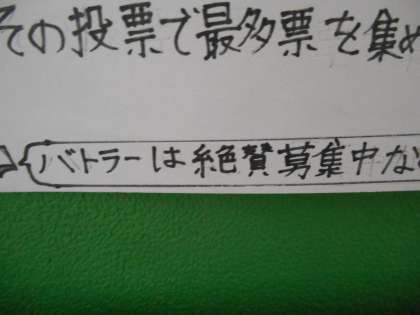 その投票で最多票を集め
バトラーは絶賛募集中な